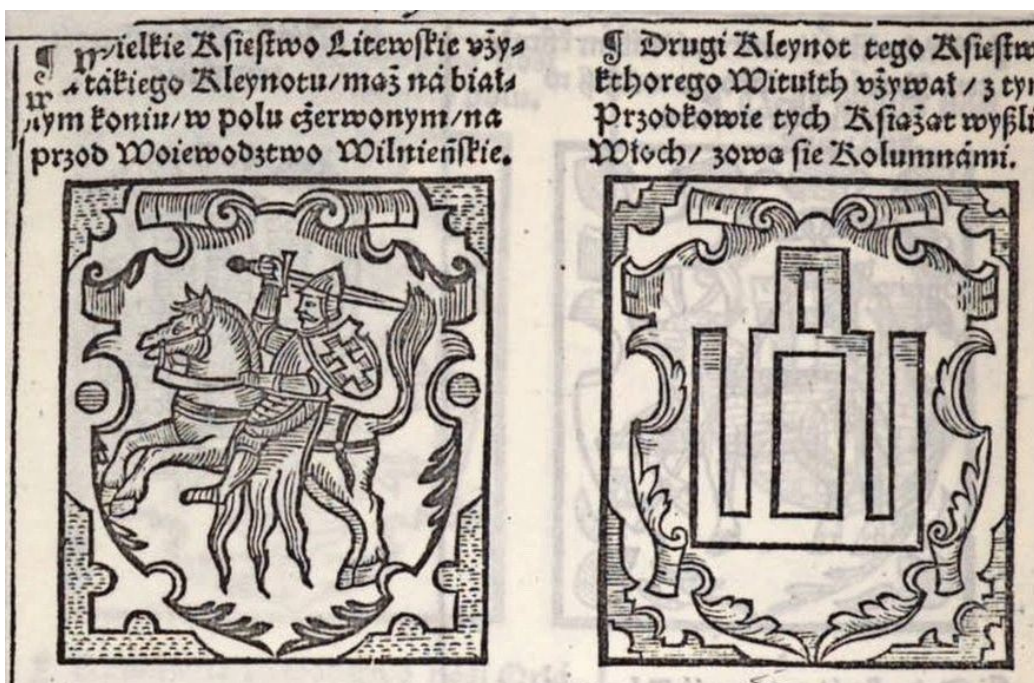 ¶ Wielkie Xiestwo Litewskie vży⸗
tákiego Kleynotu/ maż ná biał⸗
nym koniu/ w polu cżerwonym/ ná
przod Woiewodztwo Wilnieńskie.
¶ Drugi Kleynot tego Xiestw
kthorego Witulth vżywał / z tyṁ
Przodkowie tych Xiażat wyßli
Włoch/ zowa sie Kolumnámi.